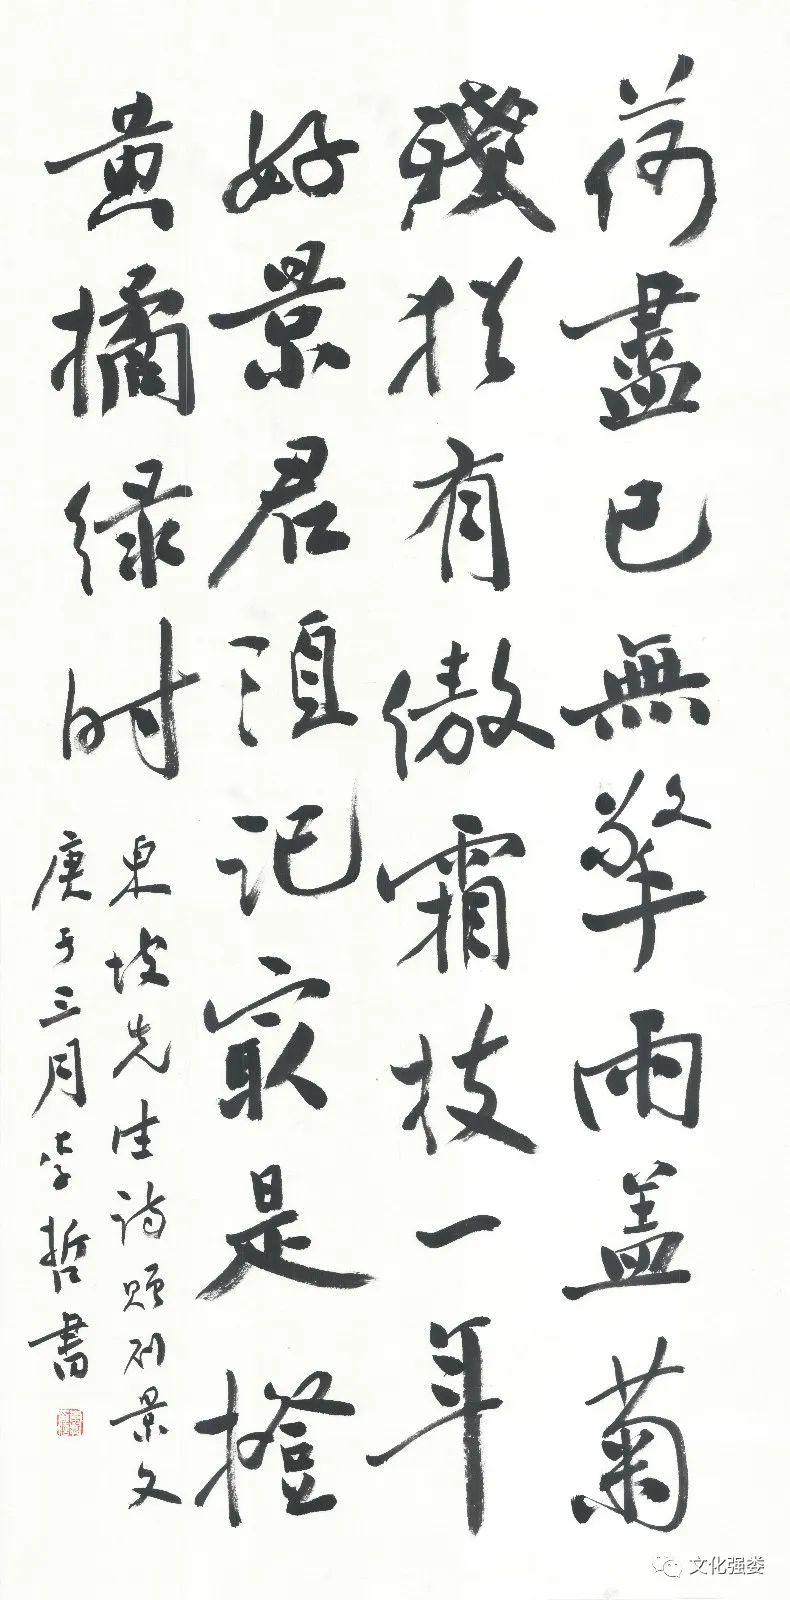 荷盡已無擎雨盖菊
殘猶有傲霜枝一年
好景君須记最是橙
黄橘绿时
東坡先生诗赠刘景文
庚子三月学哲書
文化强娄